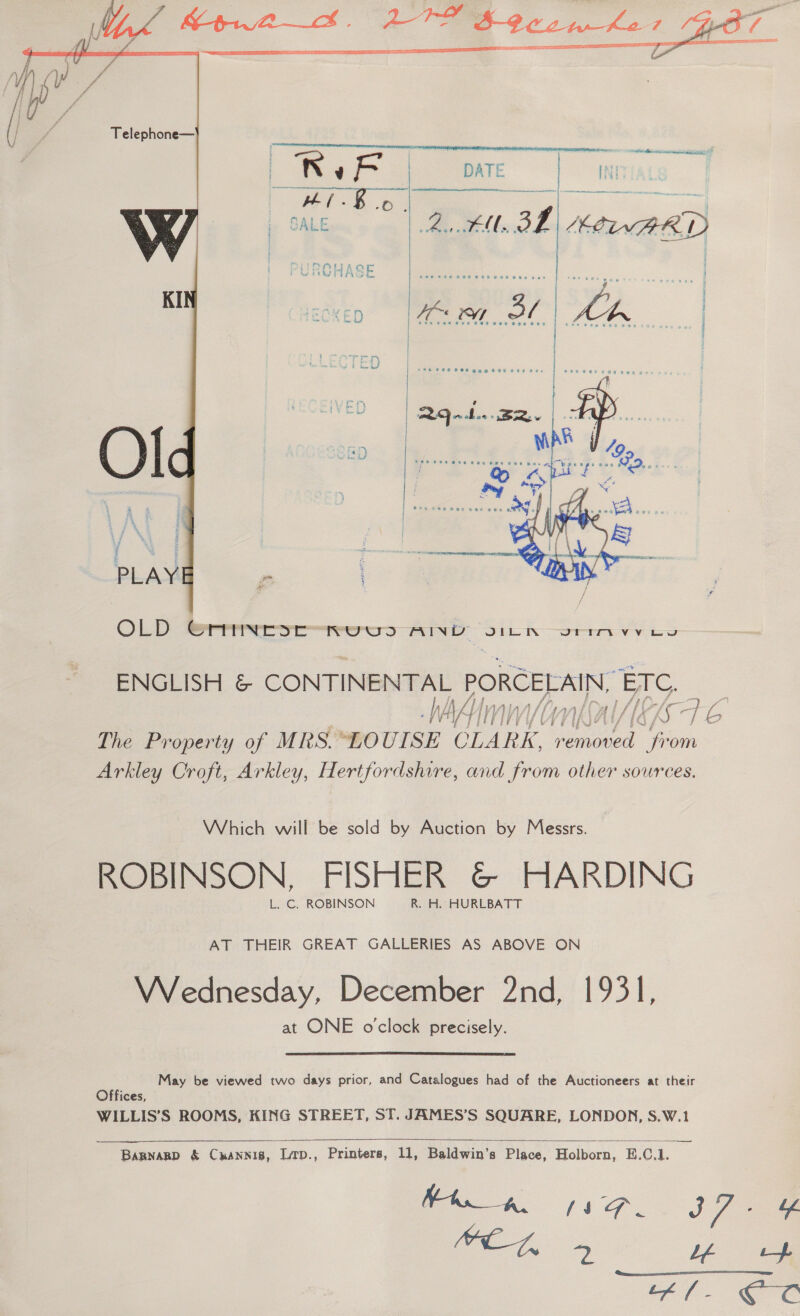 2nd December 1931
Telephone—
R & F DATE INITIALS
41.8.0
SALE 2. XII. 31 HOWARD
W
PURCHASE
KIN
CHECKED 31
COLLECTED
RECEIVED 29.1.32.
Old
ACCESSED MAR 1932
PASSED
PLAYE
OLD CHINESE RUGS AND SILK SHAWLS
ENGLISH & CONTINENTAL PORCELAIN, ETC.
WA/HMM/CM/SAL/18/576
The Property of MRS. LOUISE CLARK, removed from
Arkley Croft, Arkley, Hertfordshire, and from other sources.
Which will be sold by Auction by Messrs.
ROBINSON, FISHER & HARDING
L. C. ROBINSON R. H. HURLBATT
AT THEIR GREAT GALLERIES AS ABOVE ON
Wednesday, December 2nd, 1931,
at ONE o'clock precisely.
May be viewed two days prior, and Catalogues had of the Auctioneers at their
Offices,
WILLIS'S ROOMS, KING STREET, ST. JAMES'S SQUARE, LONDON, S.W.1
BARNARD & CRANNIS, LTD., Printers, 11, Baldwin's Place, Holborn, E.C.1.
159. 37 - 4
2 4 4
41 - 8 0